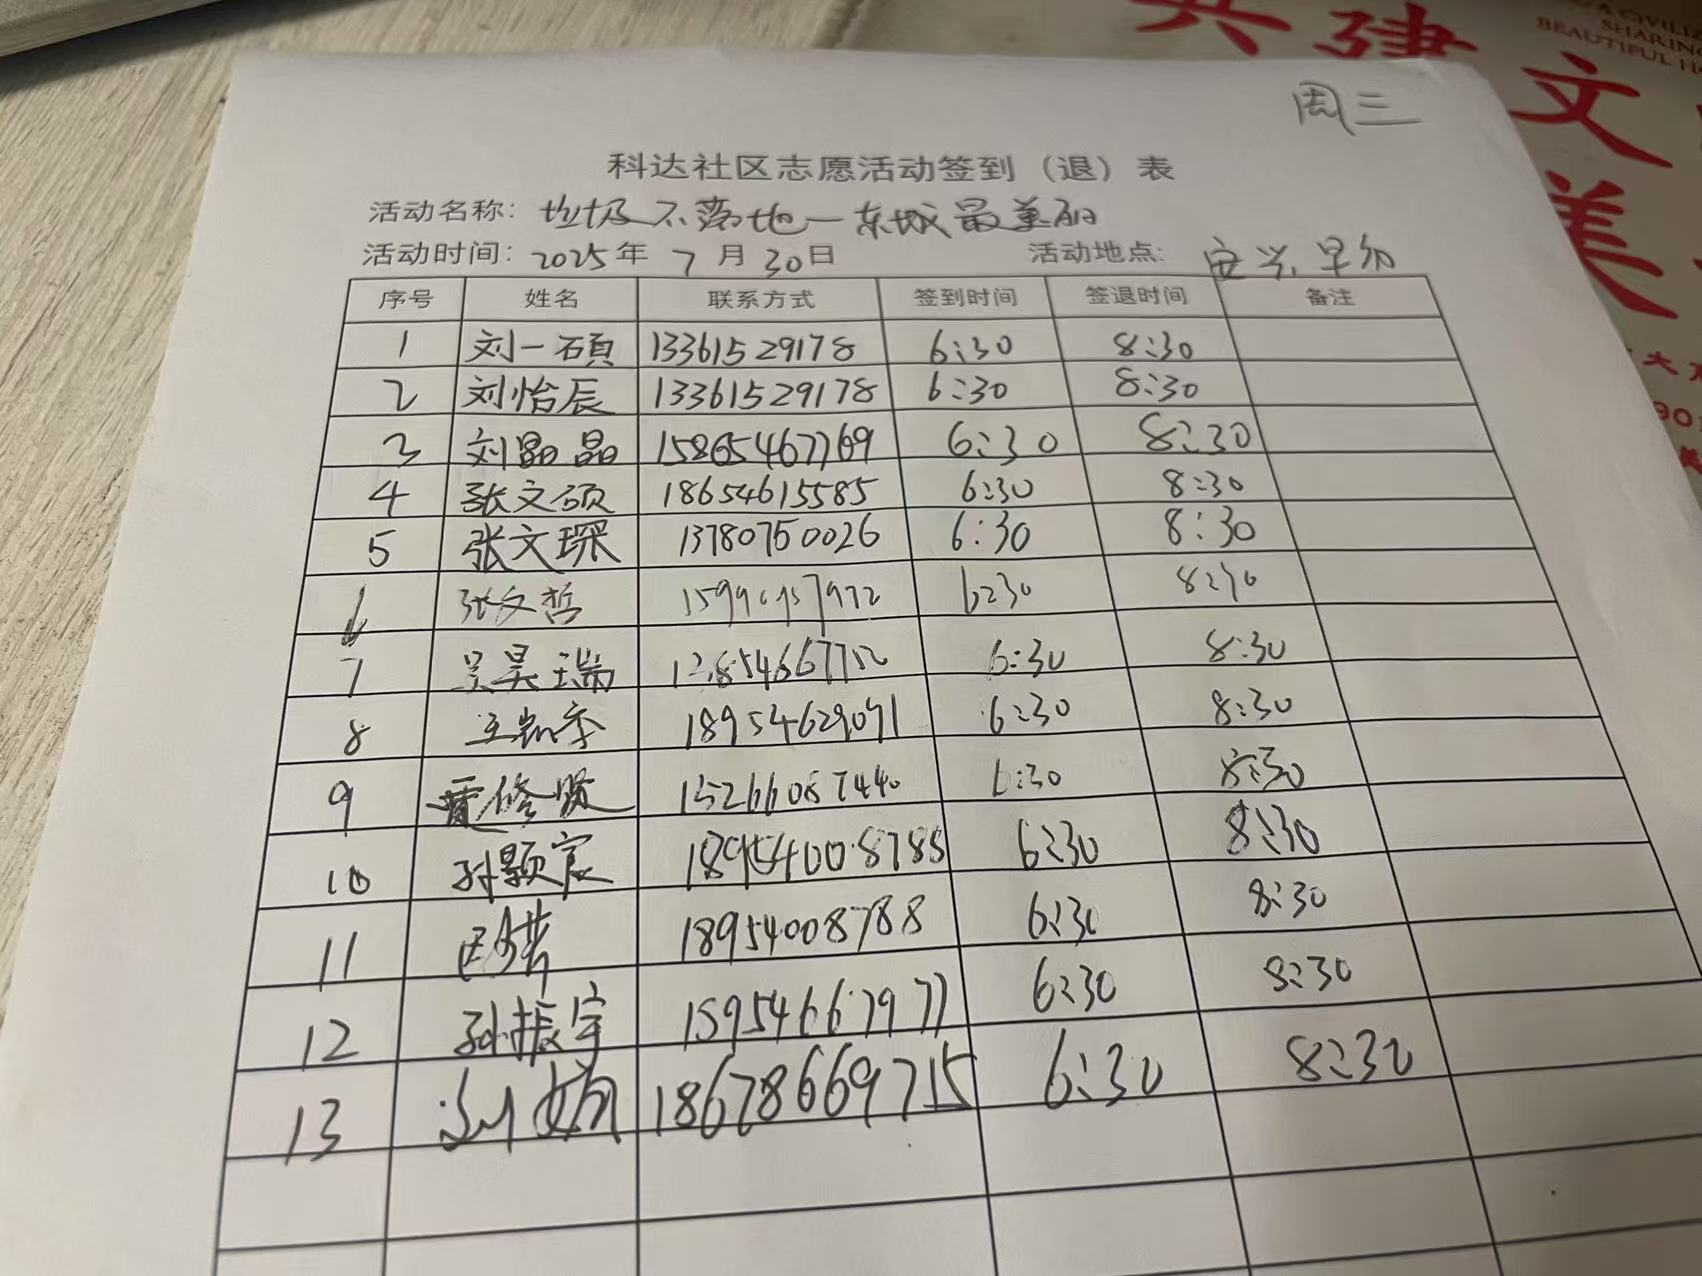 共建文
A CIVILIZ
SHARING
BEAUTIFUL H
美
大
90
周三
科达社区志愿活动签到（退）表
活动名称：垃圾不落地一东城最美丽
活动时间：2025年 7月30日 活动地点：
序号 姓名 联系方式 签到时间 签退时间 备注
1 刘一硕 13361529178 6:30 8:30
2 刘怡辰 13361529178 6:30 8:30
3 刘晶晶 15865467769 6:30 8:30
4 张文硕 18654615585 6:30 8:30
5 张文琛 13780750026 6:30 8:30
6 张文哲 6:30
7 吴昊瑞 6:30 8:30
8 18954629091 6:30 8:30
9 修贤 15266087440 6:30 8:30
10 孙颢宸 18954008788 6:30 8:30
11 18954008788 6:30 8:30
12 孙振宇 15954667977 6:30 8:30
13 刘娟 18678669715 6:30 8:30